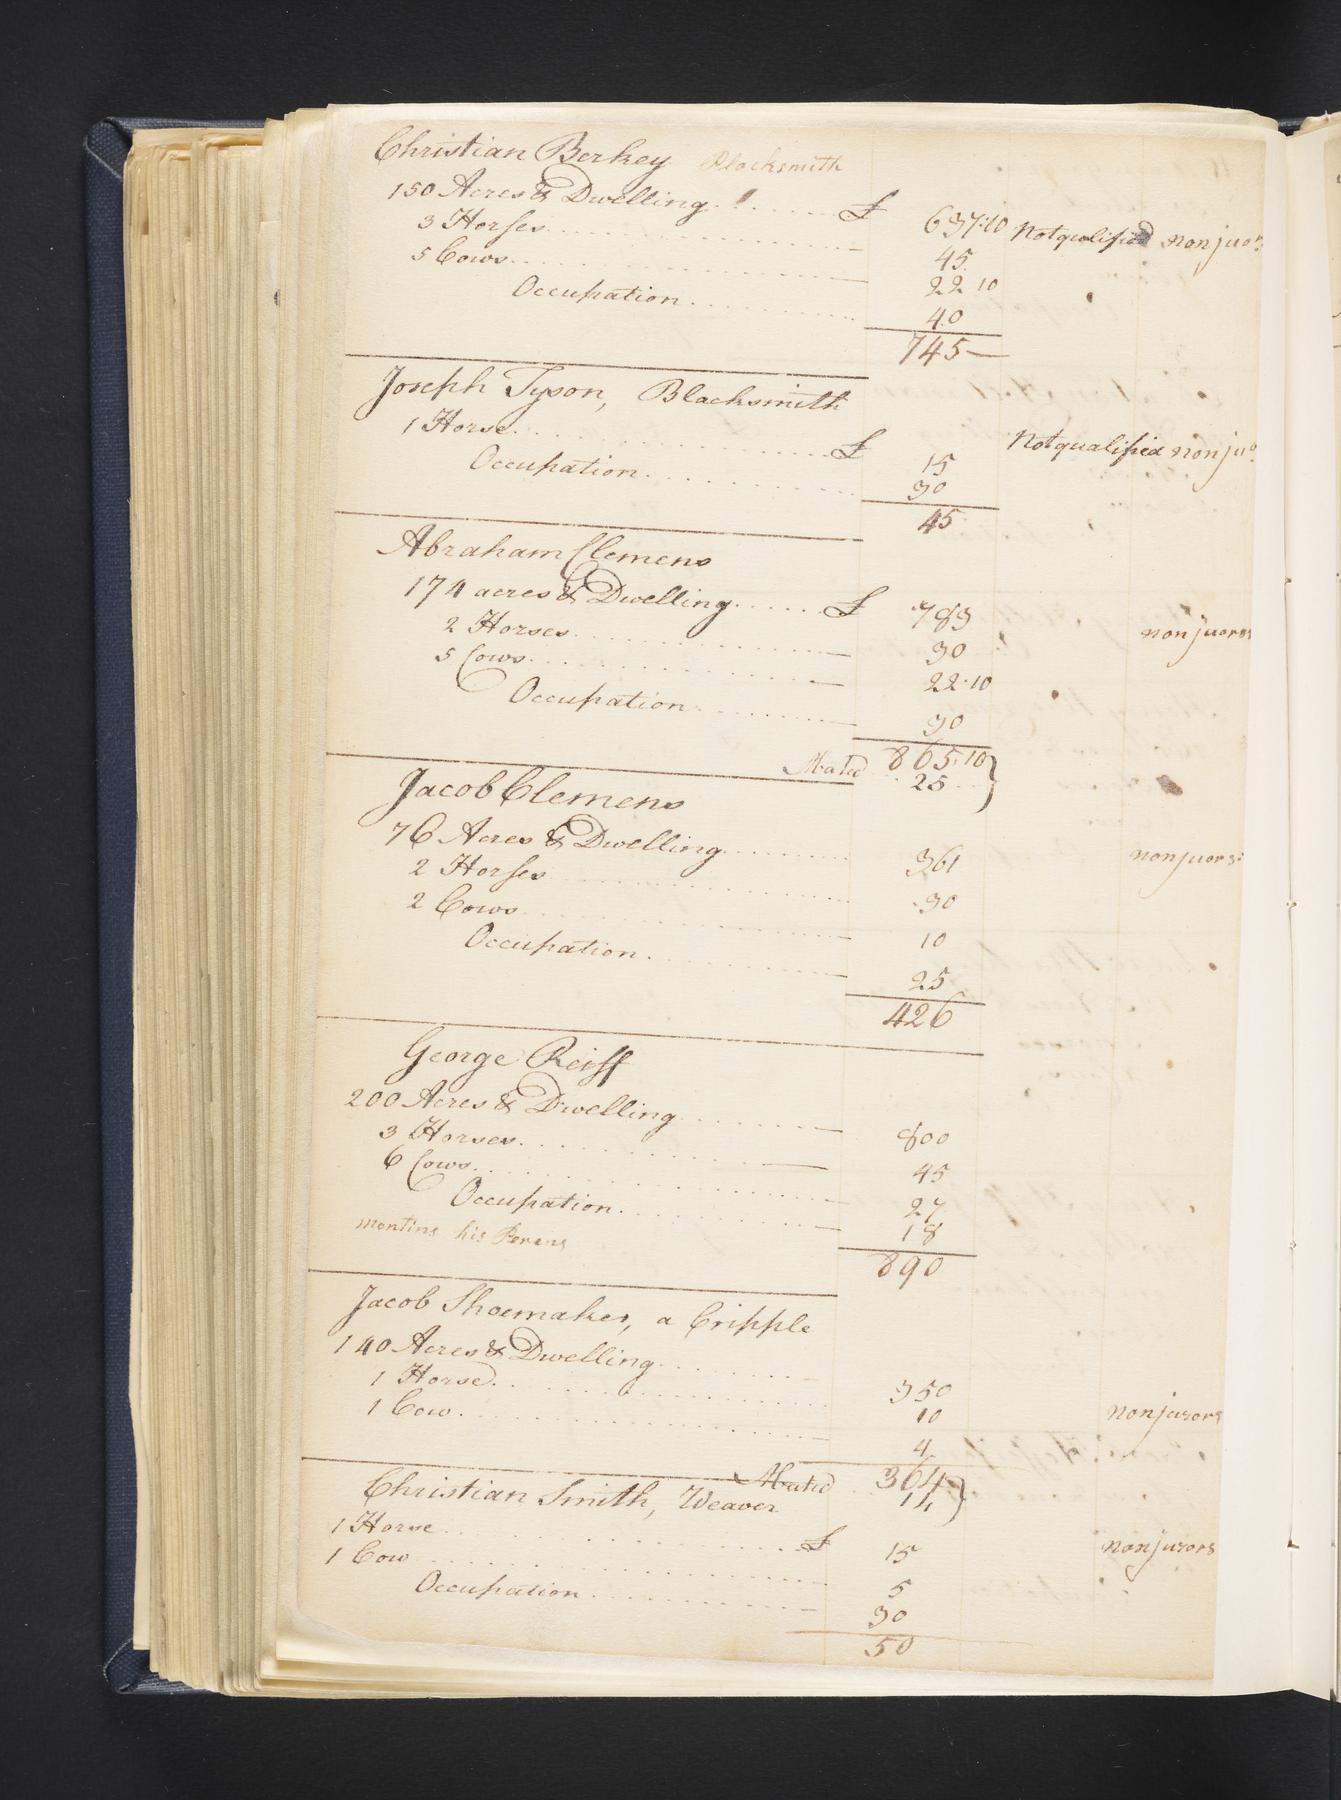 Christian Berkey Blacksmith
150 Acres & Dwelling ........ £ 637:10 Notqualified nonjuor:
3 Horses ........ 45
5 Cows ........ 22 10
Occupation ........ 40
745 —
Joseph Tyson, Blacksmith
1 Horse ........ £ 15 Notqualified nonjuo:
Occupation ........ 30
45
Abraham Clemens
174 acres & Dwelling ........ £ 783 nonjuors
2 Horses ........ 30
5 Cows ........ 22.10
Occupation ........ 30
865.10
Abated 25
Jacob Clemens
76 Acres & Dwelling ........ 361 nonjuors:
2 Horses ........ 30
2 Cows ........ 10
Occupation ........ 25
426
George Reiff
200 Acres & Dwelling ........ 800
3 Horses ........ 45
6 Cows ........ 27
Occupation ........ 18
his
890
Jacob Shoemaker, a Cripple
140 Acres & Dwelling ........ 350
1 Horse ........ 10 nonjurors
1 Cow ........ 4
Abated 364
14
Christian Smith, Weaver
1 Horse ........ £ 15 nonjurors
1 Cow ........ 5
Occupation ........ 30
50